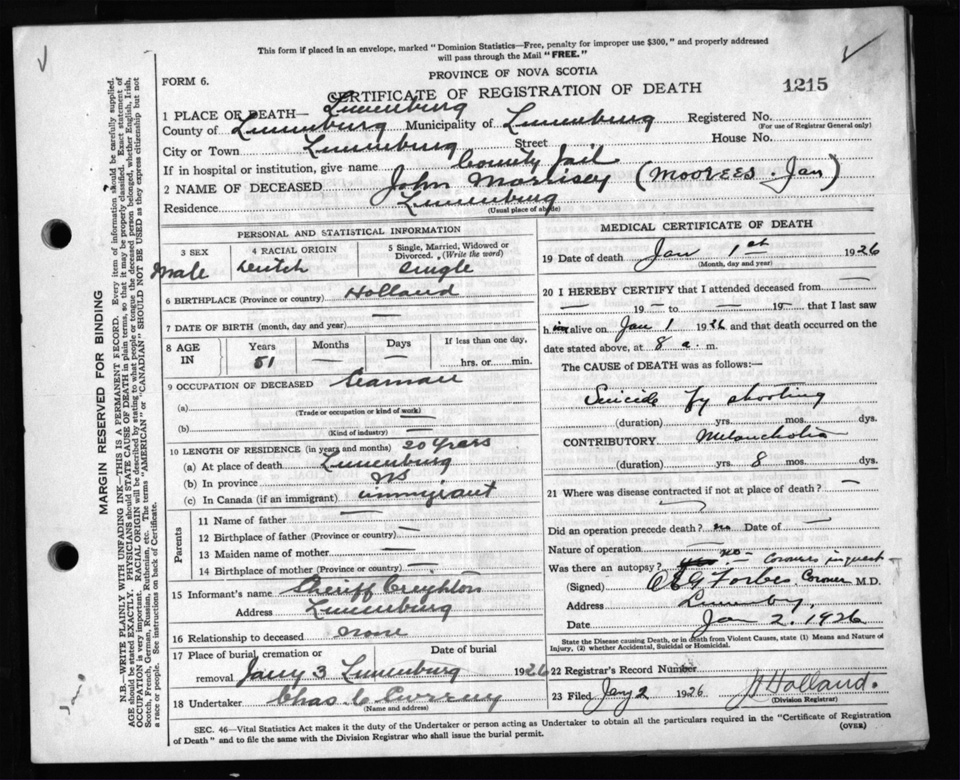 This form if placed in an envelope, marked "Dominion Statistics—Free, penalty for improper use $300," and properly addressed
will pass through the Mail "FREE."
FORM 6.
PROVINCE OF NOVA SCOTIA
CERTIFICATE OF REGISTRATION OF DEATH
1215
1 PLACE OF DEATH— Lunenburg
County of Lunenburg Municipality of Lunenburg Registered No.
(For use of Registrar General only)
City or Town Lunenburg Street House No.
If in hospital or institution, give name County Jail
2 NAME OF DECEASED John Morrisey (Moorees. Jan)
Residence Lunenburg
(Usual place of abode)
PERSONAL AND STATISTICAL INFORMATION
3 SEX 4 RACIAL ORIGIN 5 Single, Married, Widowed or
Divorced. (Write the word)
Male Dutch Single
6 BIRTHPLACE (Province or country) Holland
7 DATE OF BIRTH (month, day and year) —
8 AGE IN Years Months Days If less than one day,
51 — — hrs. or min.
9 OCCUPATION OF DECEASED Seaman
(a)
(Trade or occupation or kind of work)
(b) —
(Kind of industry)
10 LENGTH OF RESIDENCE (in years and months) 20 years
(a) At place of death Lunenburg
(b) In province NS
(c) In Canada (if an immigrant) immigrant
Parents
11 Name of father —
12 Birthplace of father (Province or country) —
13 Maiden name of mother —
14 Birthplace of mother (Province or country) —
15 Informant's name Sheriff Creighton
Address Lunenburg
16 Relationship to deceased none
17 Place of burial, cremation or Date of burial
removal Jany 3 Lunenburg 1926
18 Undertaker Chas. C.
(Name and address)
MEDICAL CERTIFICATE OF DEATH
19 Date of death Jan 1st 1926
(Month, day and year)
20 I HEREBY CERTIFY that I attended deceased from —
— 19 — to — 19 — that I last saw
h im alive on Jan 1 1926 and that death occurred on the
date stated above, at 8 a. m.
The CAUSE of DEATH was as follows:—
Suicide by shooting
(duration) yrs. mos. dys.
CONTRIBUTORY Melancholia
(duration) yrs. 8 mos. dys.
21 Where was disease contracted if not at place of death? —
Did an operation precede death? no Date of —
Nature of operation —
Was there an autopsy? no — Coroners inquest
(Signed) Forbes Coroner M.D.
Address Lunenburg
Date Jan 2. 1926
State the Disease causing Death, or in death from Violent Causes, state (1) Means and Nature of
Injury, (2) whether Accidental, Suicidal or Homicidal.
22 Registrar's Record Number
23 Filed Jany 2 1926 Holland.
(Division Registrar)
SEC. 46—Vital Statistics Act makes it the duty of the Undertaker or person acting as Undertaker to obtain all the particulars required in the "Certificate of Registration
of Death" and to file the same with the Division Registrar who shall issue the burial permit.
(OVER)
MARGIN RESERVED FOR BINDING
N.B.—WRITE PLAINLY WITH UNFADING INK—THIS IS A PERMANENT RECORD. Every item of information should be carefully supplied.
AGE should be stated EXACTLY. PHYSICIANS should STATE CAUSE OF DEATH in plain terms, so that it may be properly classified. Exact statement of
OCCUPATION is very important. RACIAL ORIGIN will be described by stating to what people or tongue the deceased person belonged, whether English, Irish,
Scotch, French, German, Russian, Ruthenian, etc. The terms "AMERICAN" or "CANADIAN" SHOULD NOT BE USED as they express citizenship but not
a race or people. See instructions on back of Certificate.